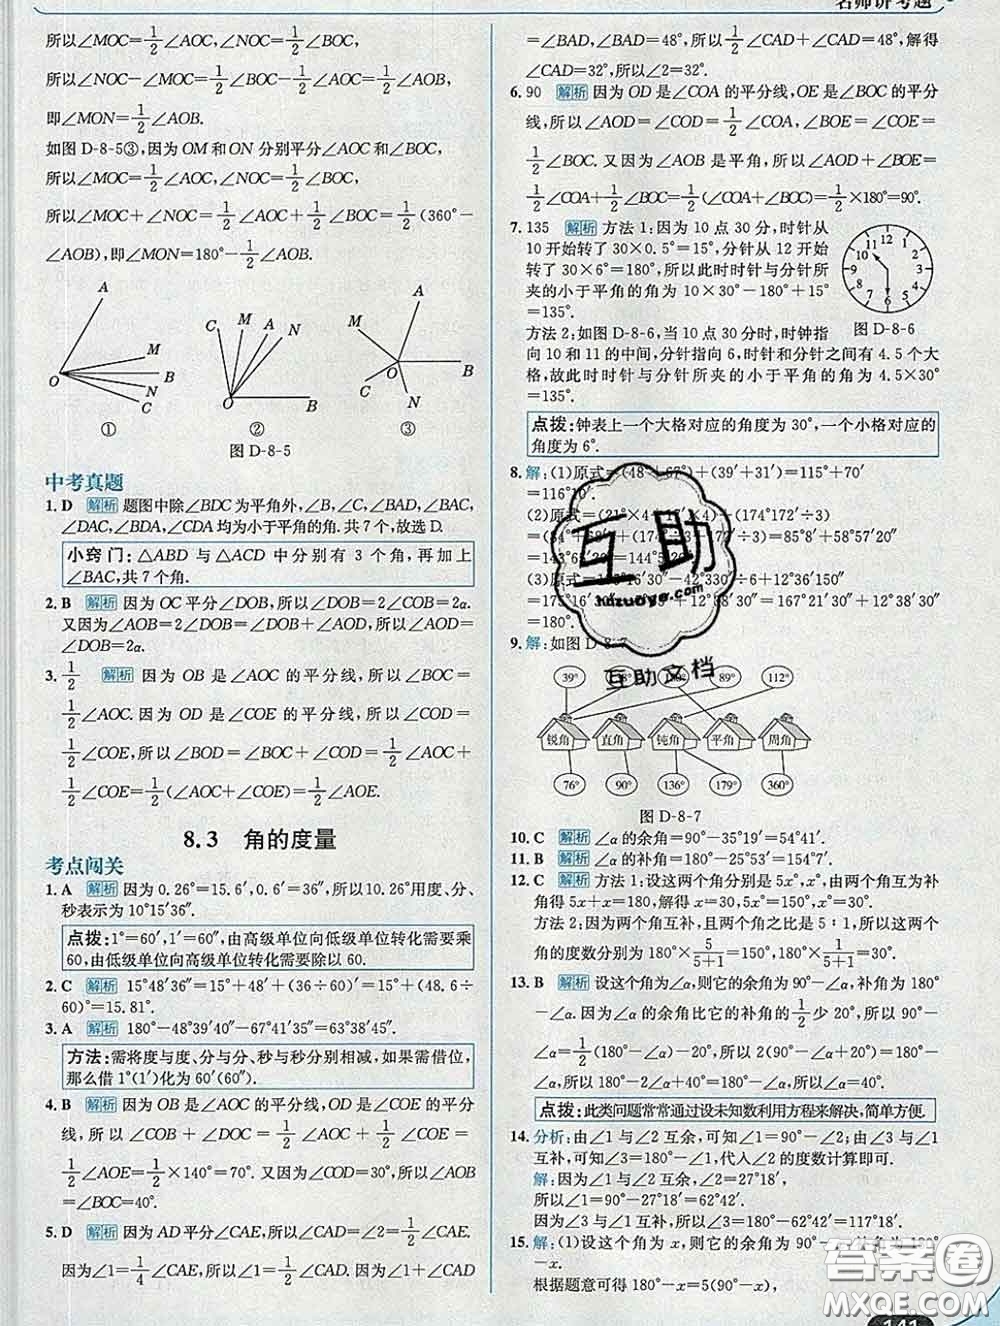 名师讲考题
所以∠MOC=1/2∠AOC,∠NOC=1/2∠BOC,
所以∠NOC-∠MOC=1/2∠BOC-1/2∠AOC=1/2∠AOB,
即∠MON=1/2∠AOB.
如图D-8-5③,因为OM和ON分别平分∠AOC和∠BOC,
所以∠MOC=1/2∠AOC,∠NOC=1/2∠BOC,
所以∠MOC+∠NOC=1/2∠AOC+1/2∠BOC=1/2(360°-
∠AOB),即∠MON=180°-1/2∠AOB.
A M B N C O
①
C M A N O B
②
M A O B N C
③
图D-8-5
中考真题
1. D 解析 题图中除∠BDC为平角外,∠B,∠C,∠BAD,∠BAC,
∠DAC,∠BDA,∠CDA均为小于平角的角.共7个,故选D.
小窍门:△ABD与△ACD中分别有3个角,再加上
∠BAC,共7个角.
2. B 解析 因为OC平分∠DOB,所以∠DOB=2∠COB=2α.
又因为∠AOB=2∠DOB,所以∠AOD=
∠DOB=2α.
3. 1/2 解析 因为OB是∠AOC的平分线,所以∠BOC=
1/2∠AOC.因为OD是∠COE的平分线,所以∠COD=
1/2∠COE,所以∠BOD=∠BOC+∠COD=1/2∠AOC+
1/2∠COE=1/2(∠AOC+∠COE)=1/2∠AOE.
8.3 角的度量
考点闯关
1. A 解析 因为0.26°=15.6′,0.6′=36″,所以10.26°用度、分、
秒表示为10°15′36″.
点拨:1°=60′,1′=60″,由高级单位向低级单位转化需要乘
60,由低级单位向高级单位转化需要除以60.
2. C 解析 15°48′36″=15°+48′+(36÷60)′=15°+(48.6÷
60)°=15.81°.
3. A 解析 180°-48°39′40″-67°41′35″=63°38′45″.
方法:需将度与度、分与分、秒与秒分别相减,如果需借位,
那么借1°(1′)化为60′(60″).
4. B 解析 因为OB是∠AOC的平分线,OD是∠COE的平分
线,所以∠COB+∠DOC=1/2∠AOC+1/2∠COE=
1/2∠AOE=1/2×140°=70°.又因为∠COD=30°,所以
∠BOC=40°.
5. D 解析 因为AD平分∠CAE,所以∠CAD=∠2=1/2∠CAE.
因为∠1=1/4∠CAE,所以∠1=1/2∠CAD.因为∠1+∠CAD
=∠BAD,∠BAD=48°,所以1/2∠CAD+∠CAD=48°,解得
∠CAD=32°,所以∠2=32°.
6. 90 解析 因为OD是∠COA的平分线,OE是∠BOC的平分
线,所以∠AOD=∠COD=1/2∠COA,∠BOE=∠COE=
1/2∠BOC.又因为∠AOB是平角,所以∠AOD+∠BOE=
1/2∠COA+1/2∠BOC=1/2(∠BOC+∠COA)=1/2×180°=90°.
7. 135 解析 方法1:因为10点30分,时针从
10开始转了30×0.5°=15°,分针从12开始
转了30×6°=180°,所以此时时针与分针所
夹的小于平角的角为10×30°-180°+15°
=135°.
方法2:如图D-8-6,当10点30分时,时钟指
向10和11的中间,分针指向6,时针和分针之间有4.5个大
格,故此时时针与分针所夹的小于平角的角为4.5×30°
=135°.
12 1 2 3 4 5 6 7 8 9 10 11
图D-8-6
点拨:钟表上一个大格对应的角度为30°,一个小格对应的
角度为6°.
8. 解:(1)原式=(48°+67°)+(39′+31′)=115°+70′
=116°10′.
(2)原式=(21°×4+17′×4)+(174°172′÷3)
=(84°+68′)+(58°+57′20″)=85°8′+58°57′20″
=143°65′20″=144°5′20″.
(3)原式=175°16′30″-42°330′÷6+12°36′150″
=175°16′30″-47°30′÷6+12°38′30″=187°54′60″
=180°.
9. 解:如图D-8-
39° 89° 112°
锐角 直角 钝角 平角 周角
76° 90° 136° 179° 360°
图D-8-7
10. C 解析 ∠α的余角=90°-35°19′=54°41′.
11. B 解析 ∠α的补角=180°-25°53′=154°7′.
12. C 解析 方法1:设这两个角分别是5x°,x°,由两个角互为补
角得5x+x=180,解得x=30,5x°=150°,x°=30°.
方法2:因为两个角互补,且两个角之比是5∶1,所以这两个角
的度数分别为180°×5/(5+1)=150°,180°×1/(5+1)=30°.
13. B 解析 设这个角为∠α,则它的余角为90°-∠α,补角为
180°-∠α.因为∠α的余角比它的补角的1/2少20°,所以90°-
∠α=1/2(180°-∠α)-20°,所以2(90°-∠α)=180°-∠α-
40°,所以180°-2∠α+40°=180°-∠α,所以∠α=40°.
点拨:此类问题常常通过设未知数利用方程来解决,简单方便.
14. 分析:由∠1与∠2互余,可知∠1=90°-∠2;由∠3与∠1
互补,可知∠3=180°-∠1,代入∠2的度数计算即可.
解:因为∠1与∠2互余,∠2=27°18′,
所以∠1=90°-27°18′=62°42′.
因为∠3与∠1互补,所以∠3=180°-62°42′=117°18′.
15. 解:(1)设这个角为x,则它的余角为90°-x,补角为180°
-x.
根据题意可得180°-x=5(90°-x),
互助
hdzuoye.com
互助文档
答案圈
MXQE.COM
141